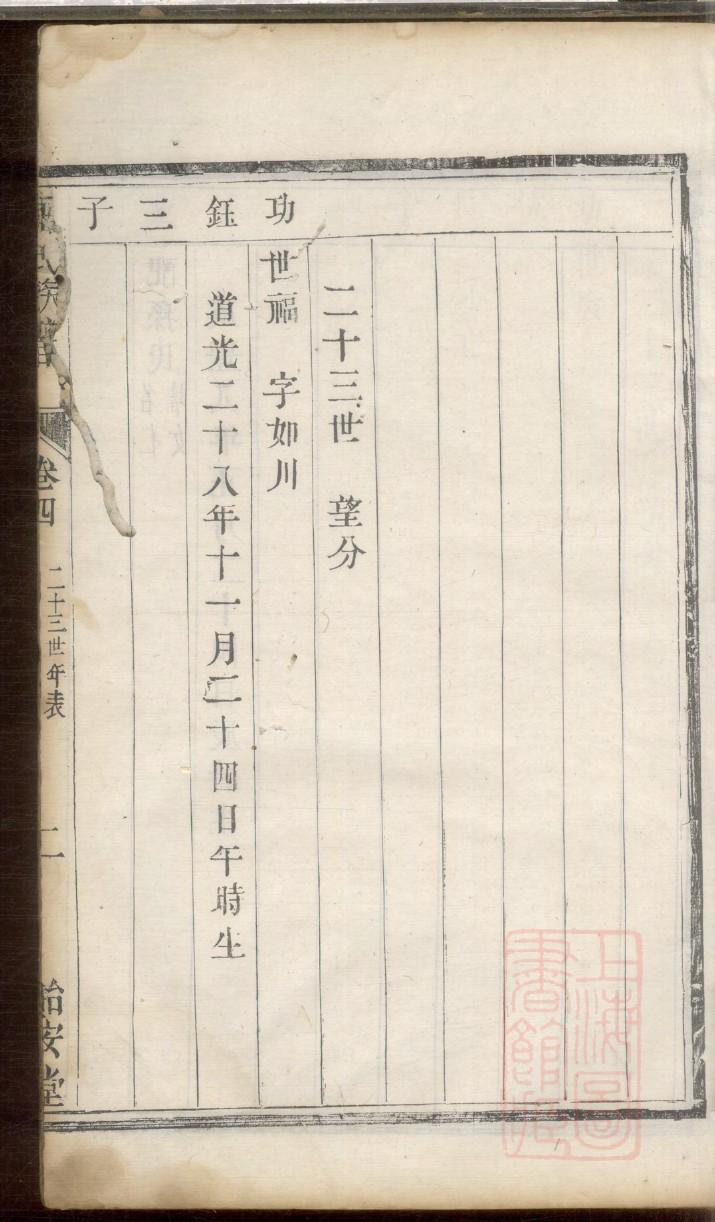 二十三世 望分
功鈺三子
世福 字如川
道光二十八年十一月二十四日午時生
氏族譜
卷四
二十三世年表
二
怡安堂
上海圖書館藏